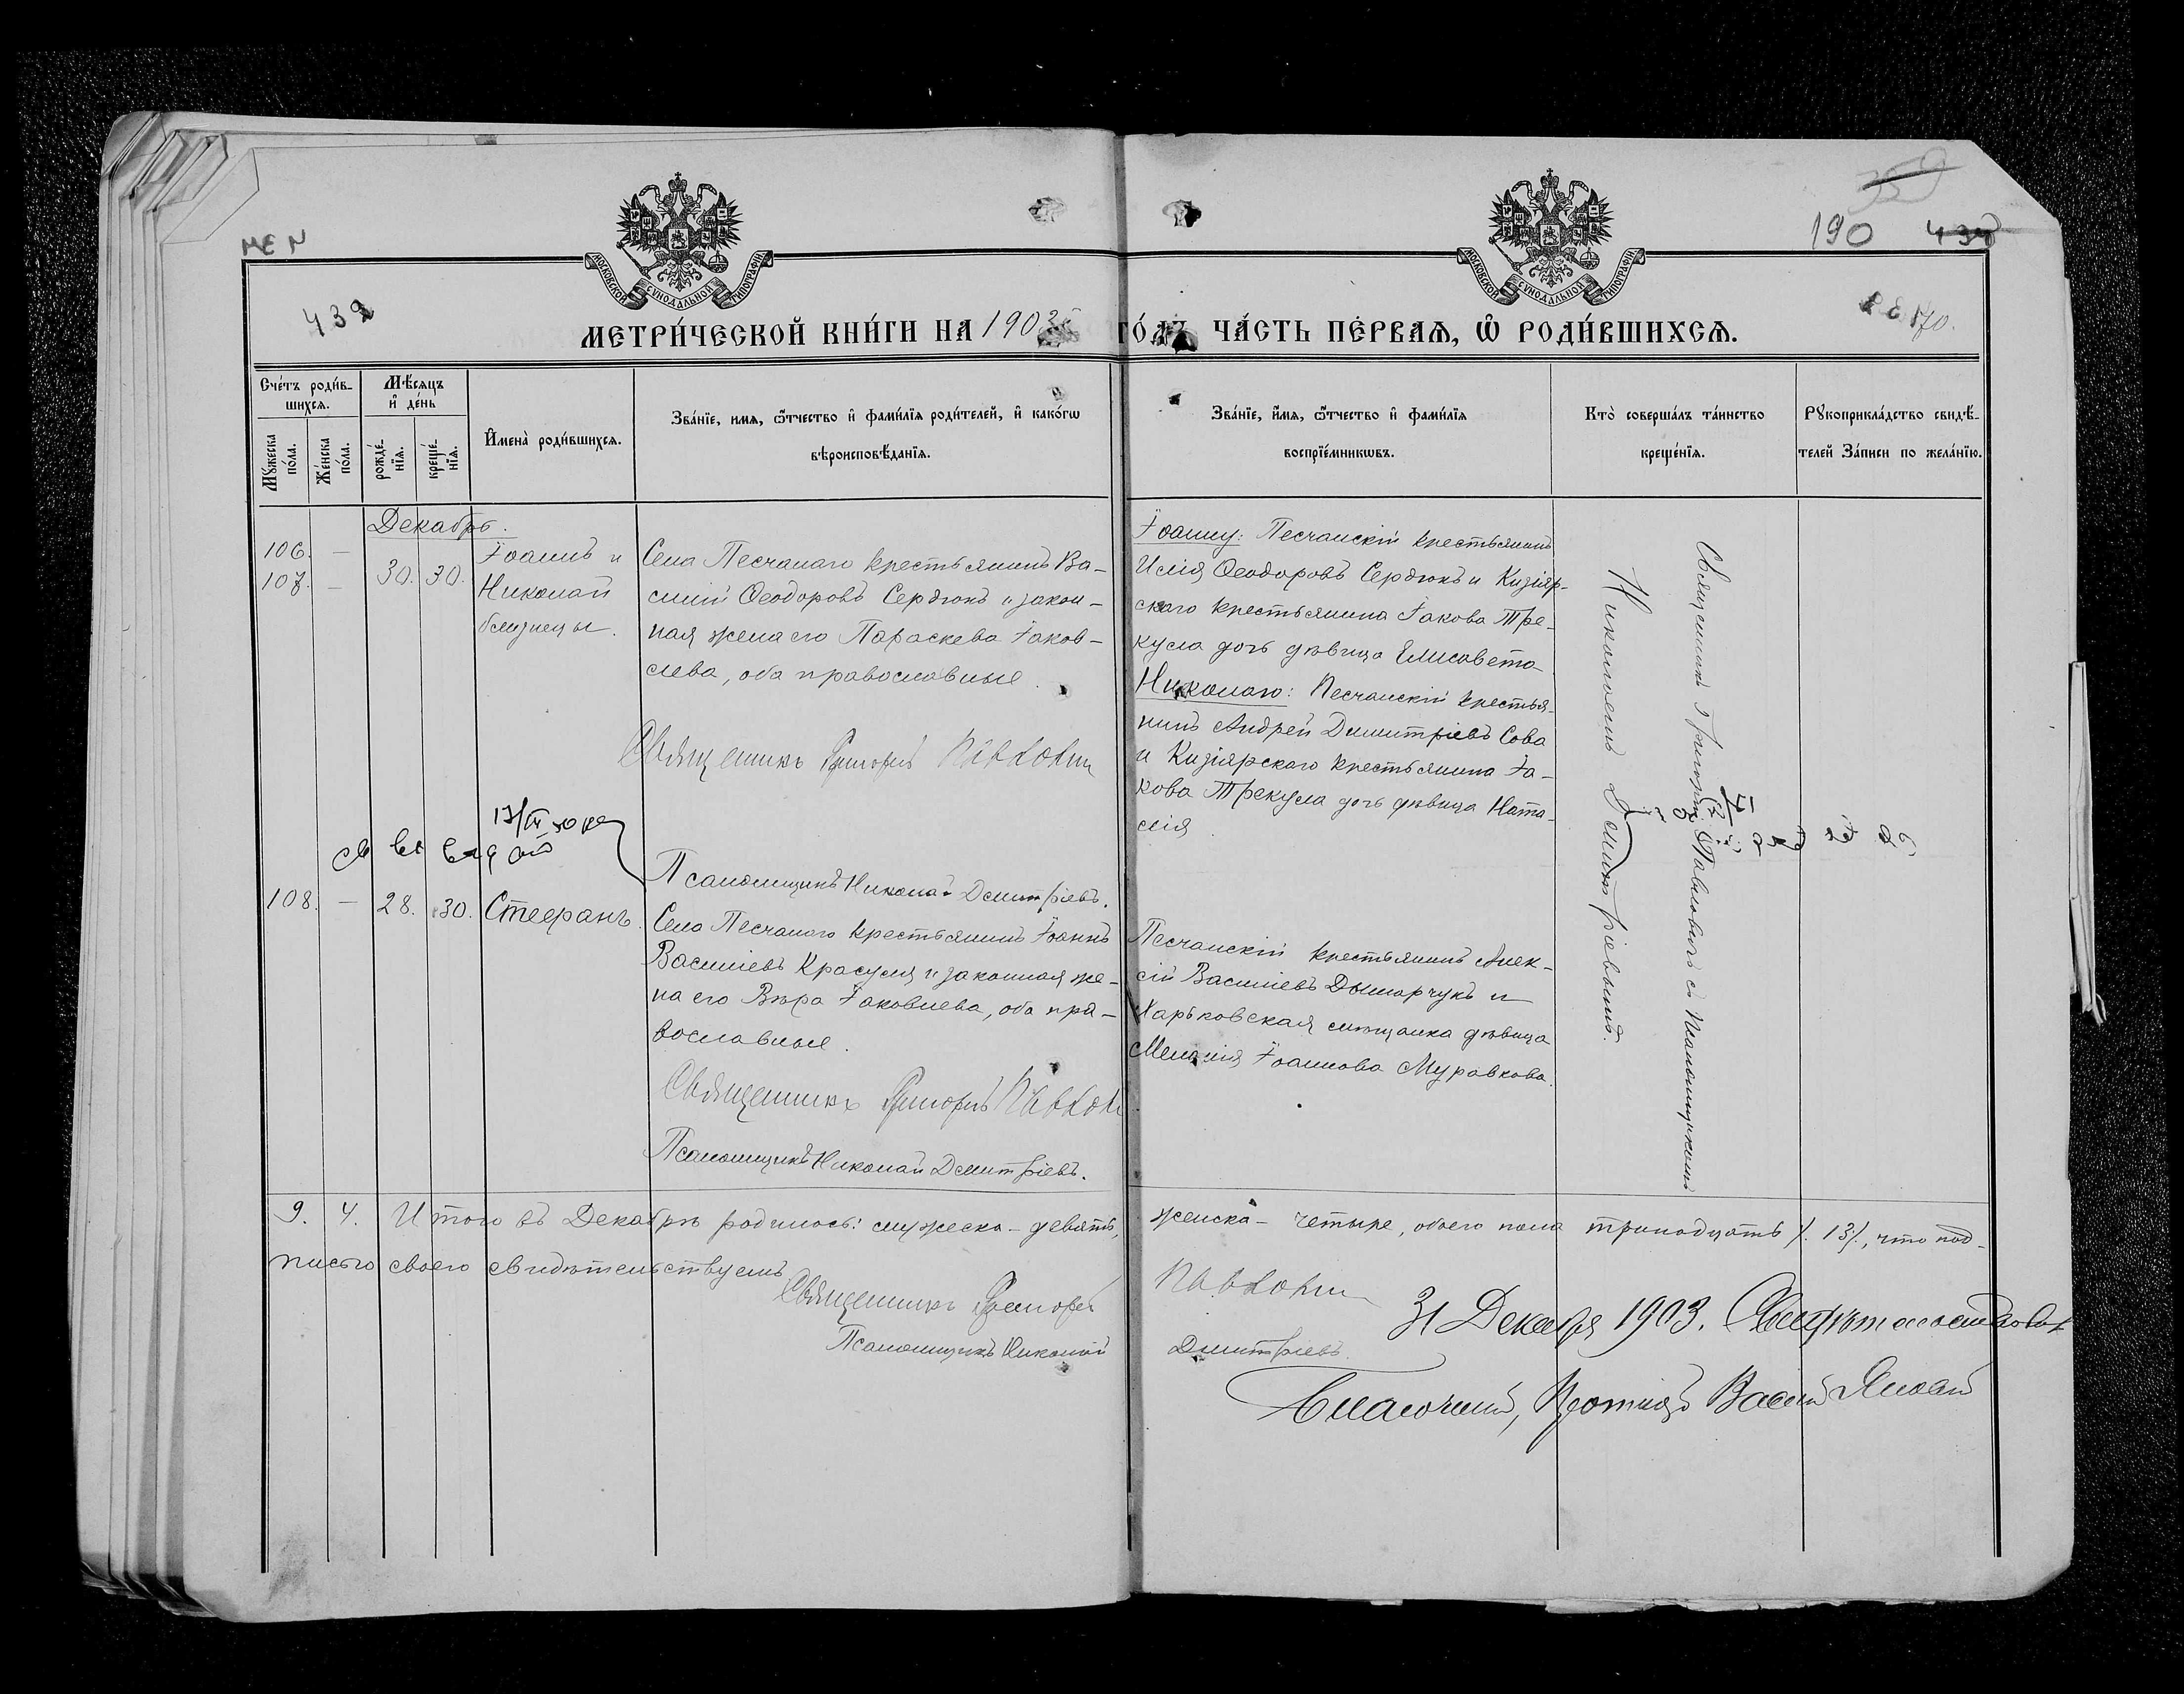 МОСКОВСКОЙ СѴНОДАЛЬНОЙ ТИПОГРАФІИ
МОСКОВСКОЙ СѴНОДАЛЬНОЙ ТИПОГРАФІИ
190
439
МЕТРИ́ЧЕСКОЙ КНИ́ГИ НА 1903 ГО́ДЪ ЧА́СТЬ ПЕ́РВАѦ, Ѽ РОДИ́ВШИХСѦ.
Сче́тъ роди́в-
шихсѧ.
Мꙋ́жеска
по́ла.
Же́нска
по́ла.
Мѣ́сѧцъ
и҆ де́нь
рожде́-
нїѧ.
креще́-
нїѧ.
И҆мена̀ роди́вшихсѧ.
Зва́нїе, имѧ, ѻ҆́тчество и҆ фами́лїѧ роди́телей, и҆ како́гѡ
вѣроисповѣ́данїѧ.
Зва́нїе, и҆́мѧ, ѻ҆́тчество и҆ фами́лїѧ
воспрїе́мникѡвъ.
Кто̀ соверша́лъ та́инство
креще́нїѧ.
Рꙋкоприкла́дство свидѣ́-
телей За́писи по жела́нїю.
Декабрь.
106. —
107. —
30. 30.
Іоаннъ и
Николай
близнецы.
Села Песчанаго крестьянинъ Ва-
силій Ѳеодоровъ Сердюкъ и закон-
ная жена его Параскева Іаков-
лева, оба православные.
Священникъ Григорій Павловичъ
Псаломщикъ Николай Димитріевъ.
Іоанну: Песчанскій крестьянинъ
Илія Ѳеодоровъ Сердюкъ и Кизіяр-
скаго крестьянина Іакова Тре-
кула дочь дѣвица Елисавета
Николаю: Песчанскій крестья-
нинъ Андрей Димитріевъ Сова
и Кизіярскаго крестьянина Іа-
кова Трекула дочь дѣвица Ната-
лія.
Священникъ Григорій Павловичъ съ Псаломщикомъ
Николаемъ Димитріевымъ.
108. — 28. 30. Стефанъ.
Села Песчанаго крестьянинъ Іоаннъ
Василіевъ Красуля и законная же-
на его Вѣра Іаковлева, оба пра-
вославные.
Священникъ Григорій Павлов
Псаломщикъ Николай Димитріевъ.
Песчанскій крестьянинъ Алек-
сій Василіевъ Дымарчукъ и
Харьковская мѣщанка дѣвица
Меланія Іоаннова Муравкова.
9. 4. Итого въ Декабрѣ родилось: мужеска - девять, женска - четыре, обоего пола тринадцать /. 13/., что под-
писью своею свидѣтельствуемъ
Священникъ Григорій Павловичъ
Псаломщикъ Николай Димитріевъ.
31 Декабря 1903. Свидѣтельствовалъ
Благочинный, Протоіерей Василій